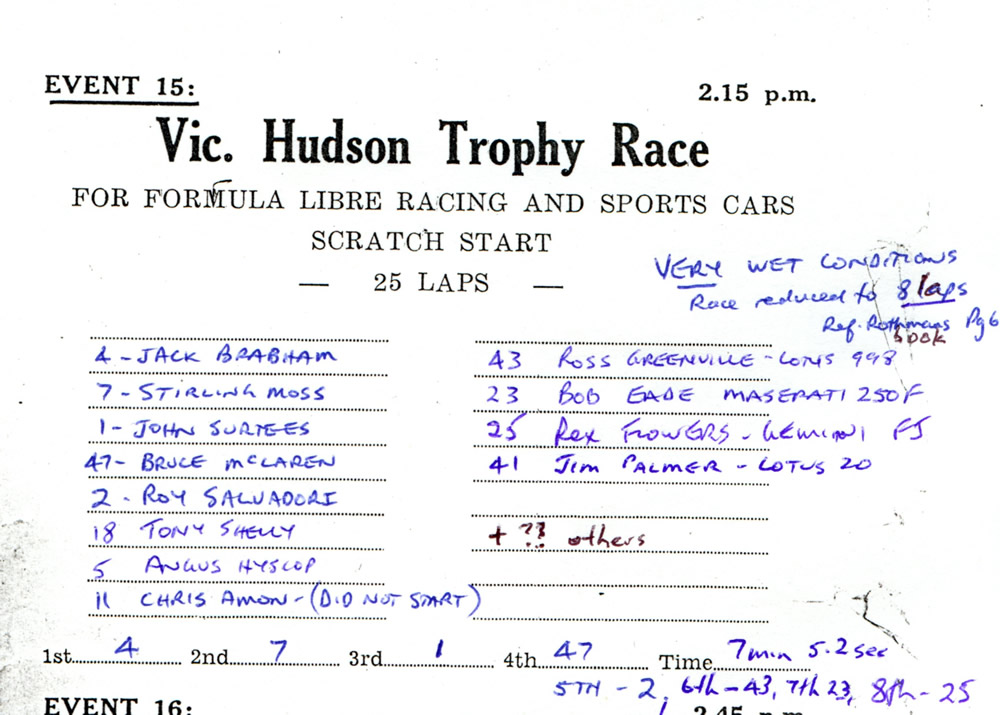 EVENT 15: 2.15 p.m.
Vic. Hudson Trophy Race
FOR FORMULA LIBRE RACING AND SPORTS CARS
SCRATCH START
— 25 LAPS —
VERY WET CONDITIONS
Race reduced to 8 laps
Ref. Rothmans Pg 6
book
4 - JACK BRABHAM
7 - STIRLING MOSS
1 - JOHN SURTEES
47 - BRUCE McLAREN
2 - ROY SALVADORI
18 TONY SHELLY
5 ANGUS HYSLOP
11 CHRIS AMON - (DID NOT START)
43 ROSS GREENVILLE - LOTUS 998
23 BOB EADE MASERATI 250F
25 Rex FLOWERS - GEMINI FJ
41 Jim PALMER - LOTUS 20
+ ?? others
1st 4 2nd 7 3rd 1 4th 47 Time 7min 5.2sec
5TH - 2, 6th - 43, 7th 23, 8th - 25
EVENT 16: 2.45 p.m.